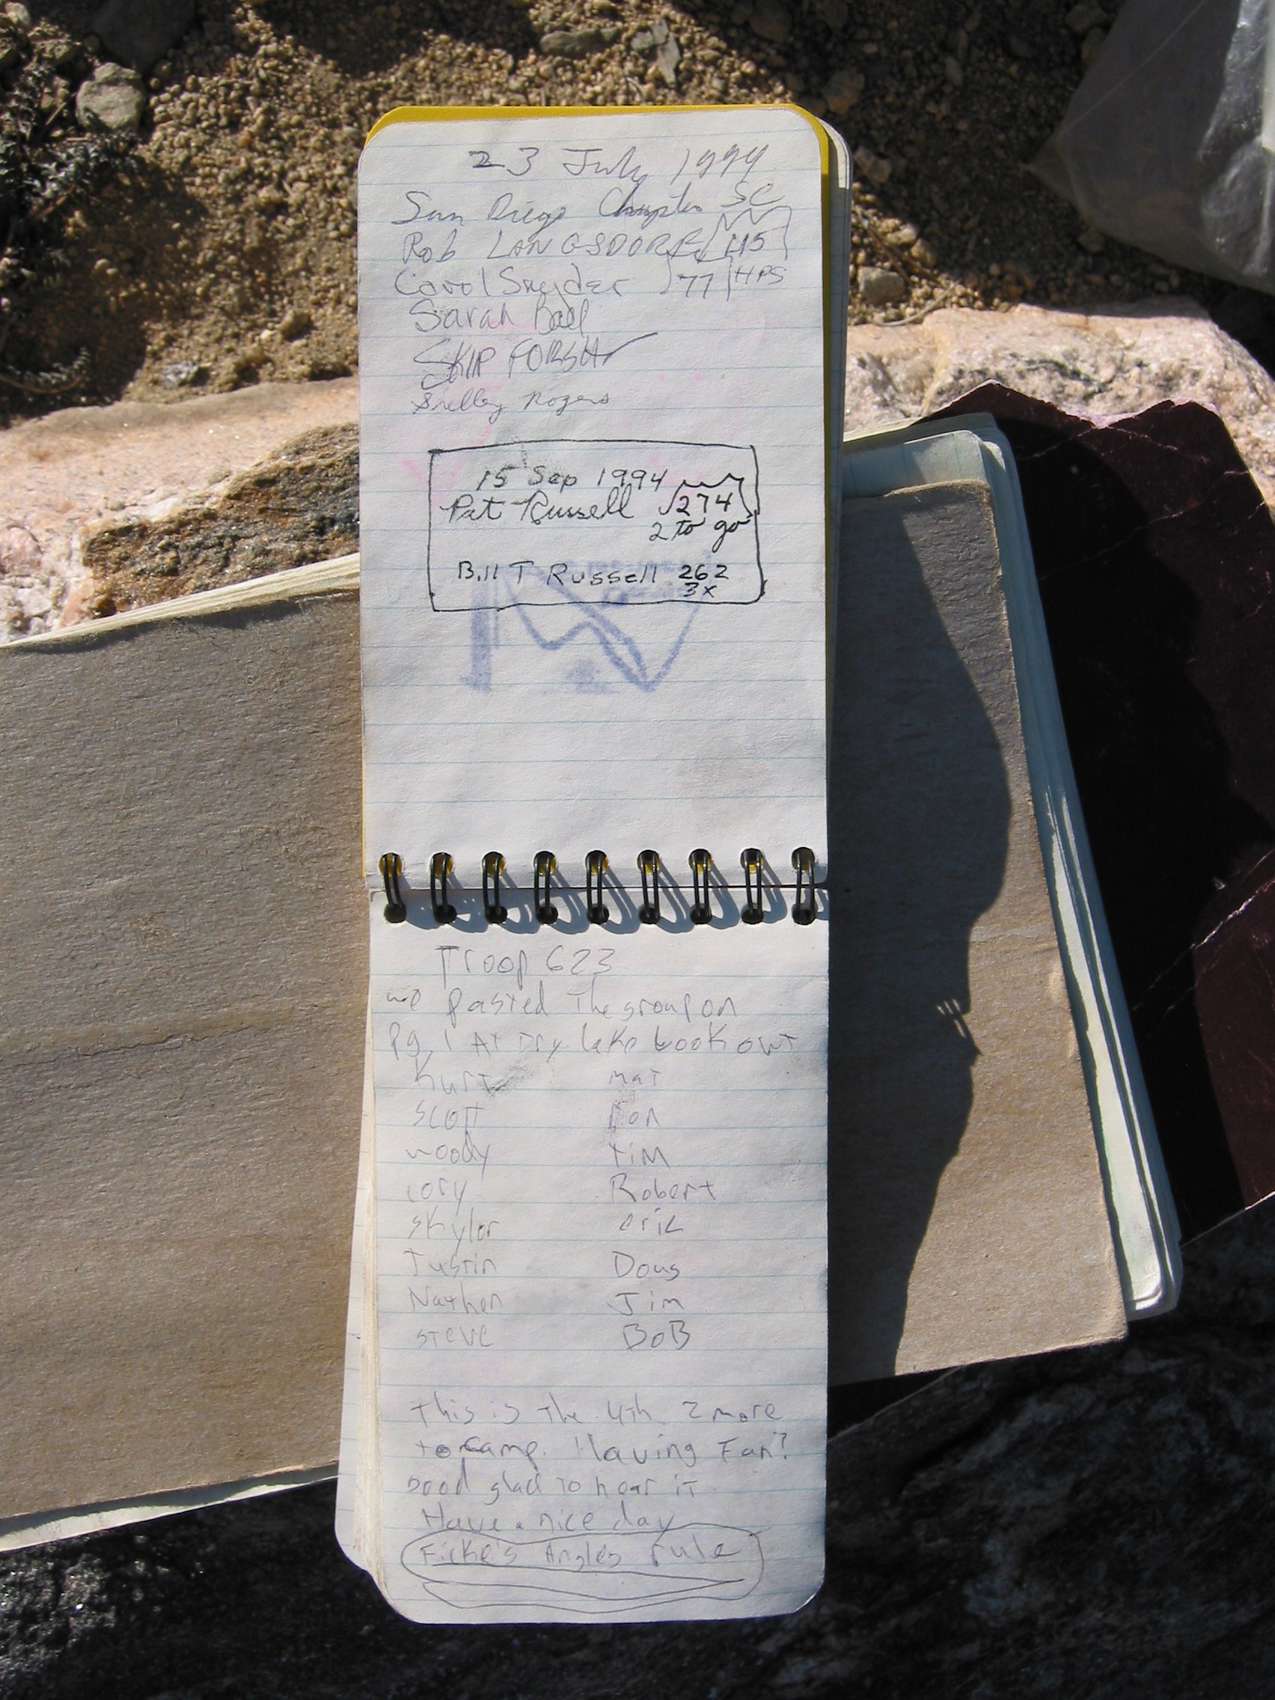 23 July 1994
San Diego Chapter SC
Rob LANGSDORF 115
Carol Snyder 77 HPS
Sarah Ball
SKIP FORSHT
Shelley Rogers
15 Sep 1994
Pat Russell 274
2 to go
Bill T Russell 262
3x
Troop 623
we pasted The group on
Pg 1 At Dry lake book out
Kurt mat
Scott Ron
woody Tim
cory Robert
Skylor eric
Justin Doug
Nathen Jim
STeve BoB
This is The 4th 2 more
to camp. Having Fun?
Good glad To hear iT
Have a nice day
Ficke's Angles rule